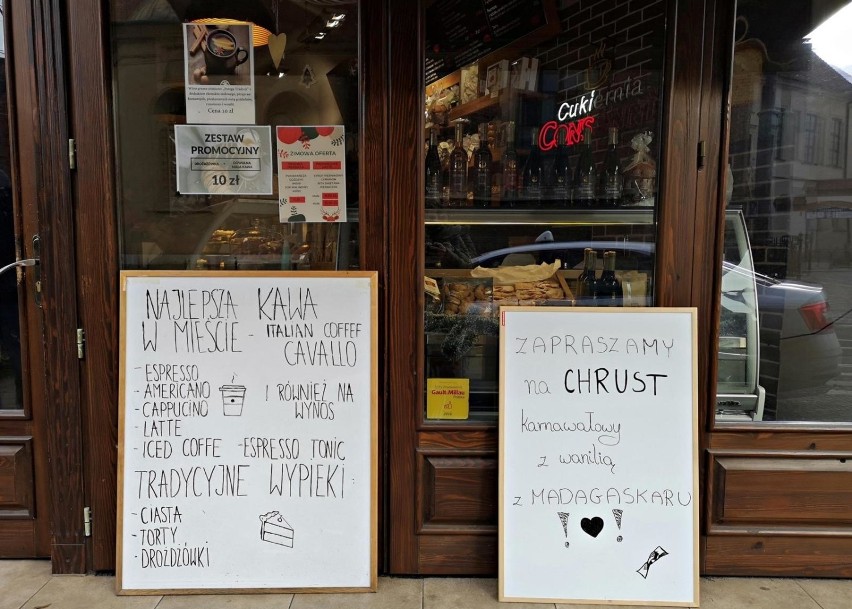 Cena 10 zł
ZESTAW
PROMOCYJNY
10 zł
ZIMOWA OFERTA
Cukiernia
Gault&Millau
NAJLEPSZA KAWA
W MIEŚCIE - ITALIAN COFFEE
CAVALLO
- ESPRESSO
- AMERICANO
- CAPPUCINO
- LATTE
- ICED COFFE - ESPRESSO TONIC
I RÓWNIEŻ NA
WYNOS
TRADYCYJNE WYPIEKI:
- CIASTA
- TORTY
- DROŻDŻÓWKI
ZAPRASZAMY
na CHRUST
karnawałowy
z wanilią
z MADAGASKARU
! ♥ !